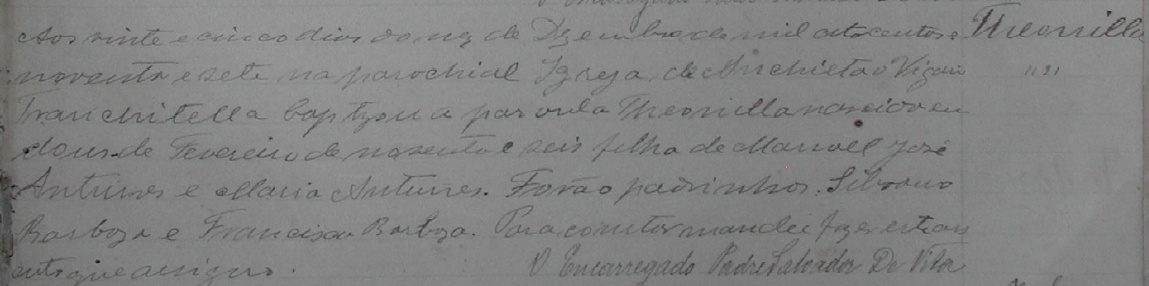 Aos vinte e cinco dias do mez de Dezembro de mil oitocentos e Theonilla
noventa e sete na parochial Igreja de Anchieta o Vigario
Franchitella baptizou a parvula Theonilla nascida em
dous de Fevereiro de noventa e seis filha de Manoel José
Antunes e Maria Antunes. Forão padrinhos Silvano
Barboza e Francisca Barboza. Para constar mandei fazer este
auto que assigno.
O Encarregado Padre Salvador De Vita